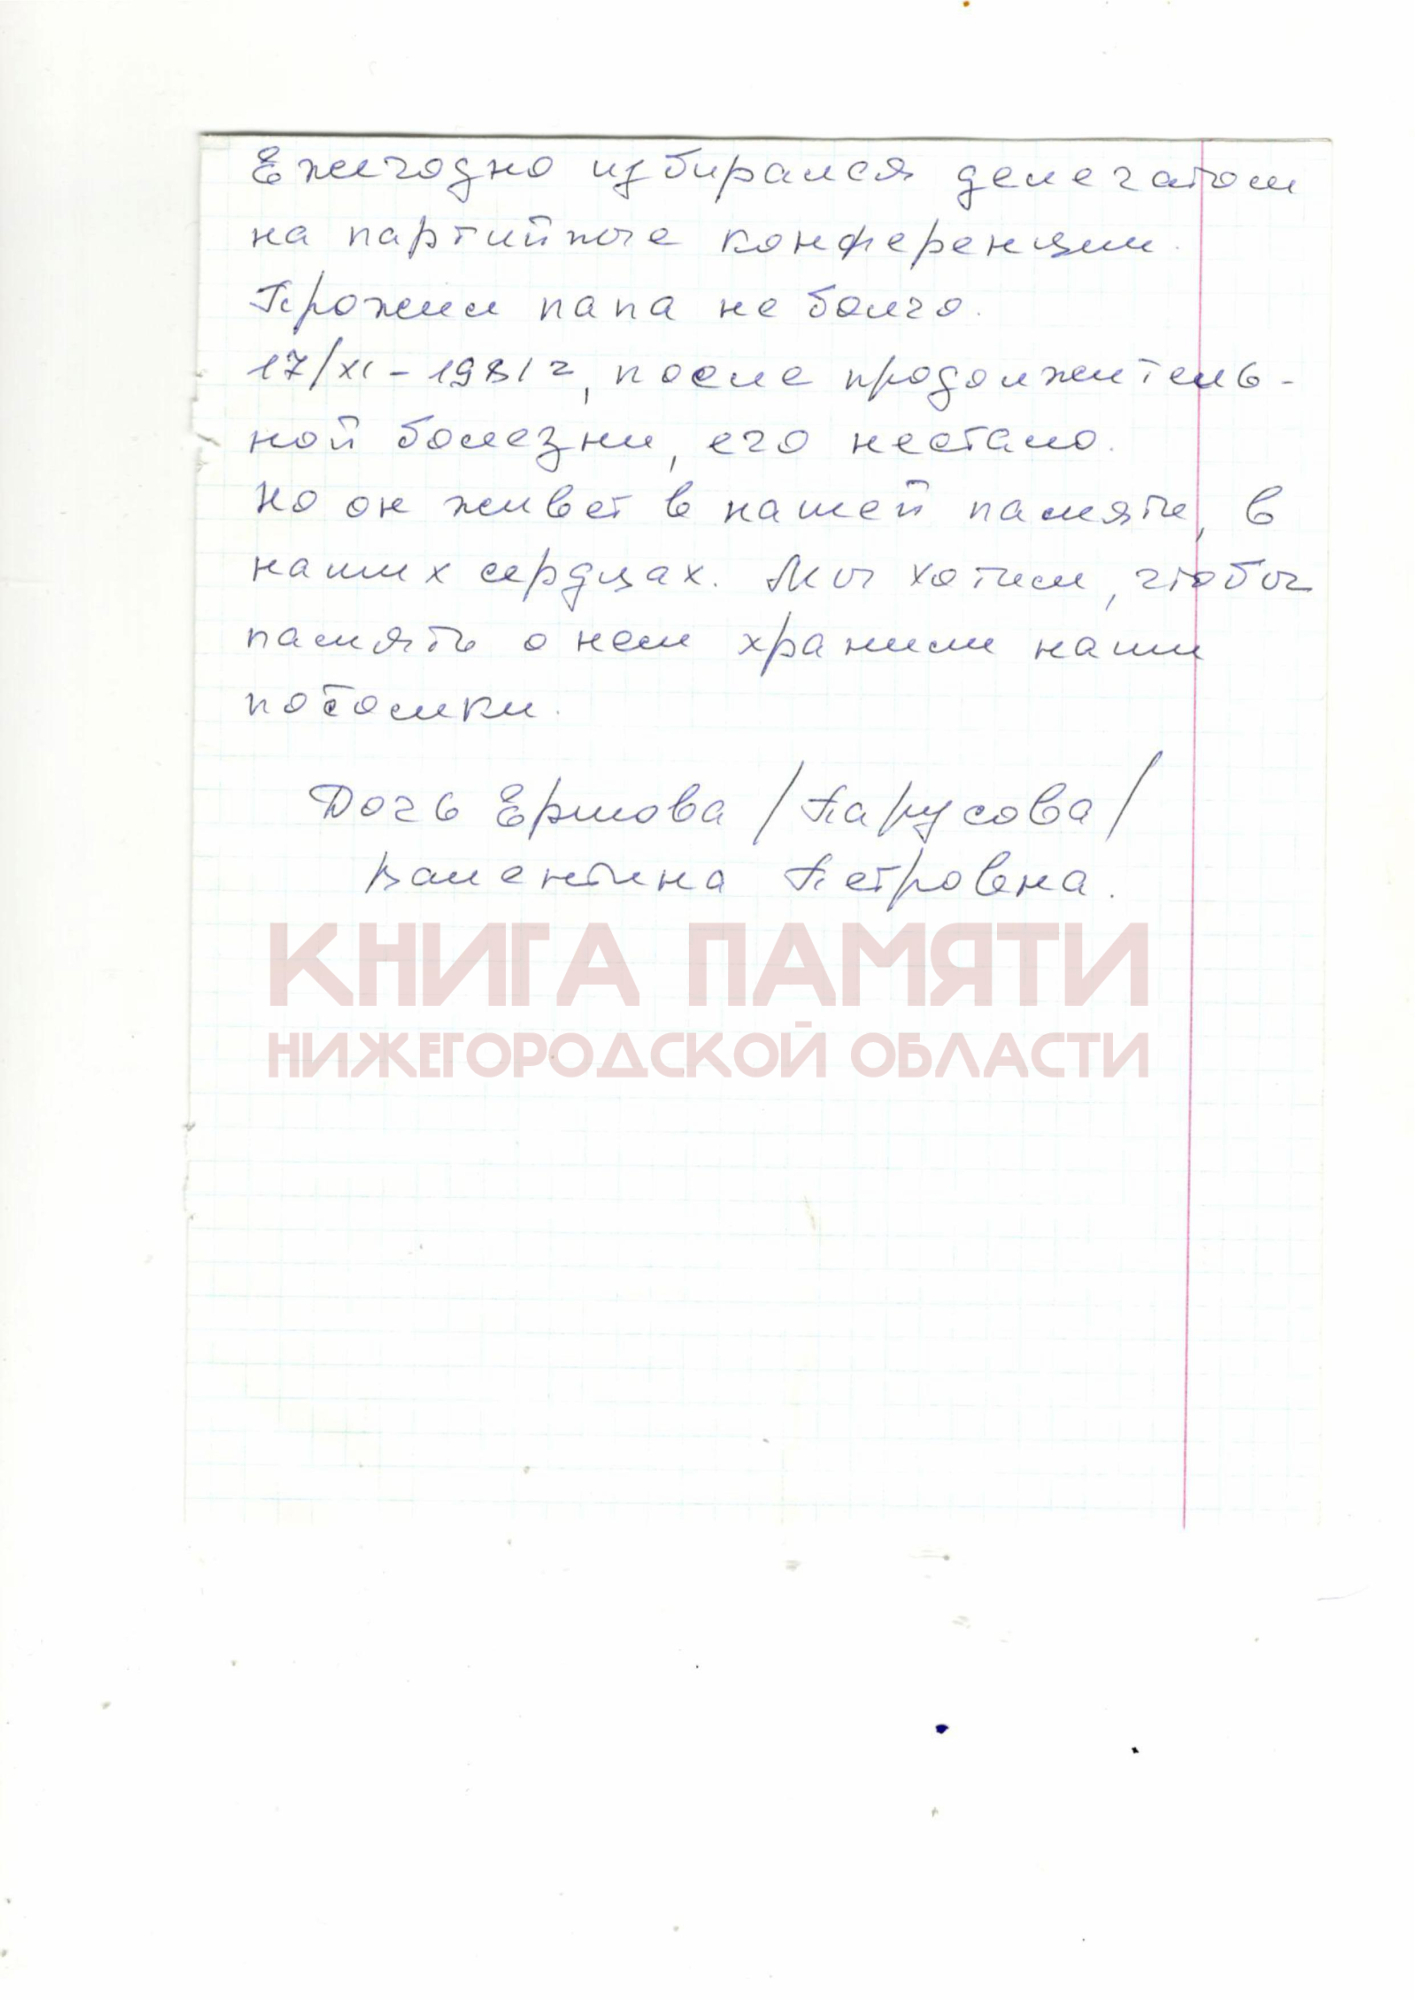 Ежегодно избирался делегатом
на партийные конференции.
Прожил папа не долго.
17/XI-1981г, после продолжитель-
ной болезни, его нестало.
Но он живет в нашей памяти, в
наших сердцах. Мы хотим, чтобы
память о нем хранили наши
потомки.
Дочь Ершова /Парусова/
Валентина Петровна.
КНИГА ПАМЯТИ
НИЖЕГОРОДСКОЙ ОБЛАСТИ